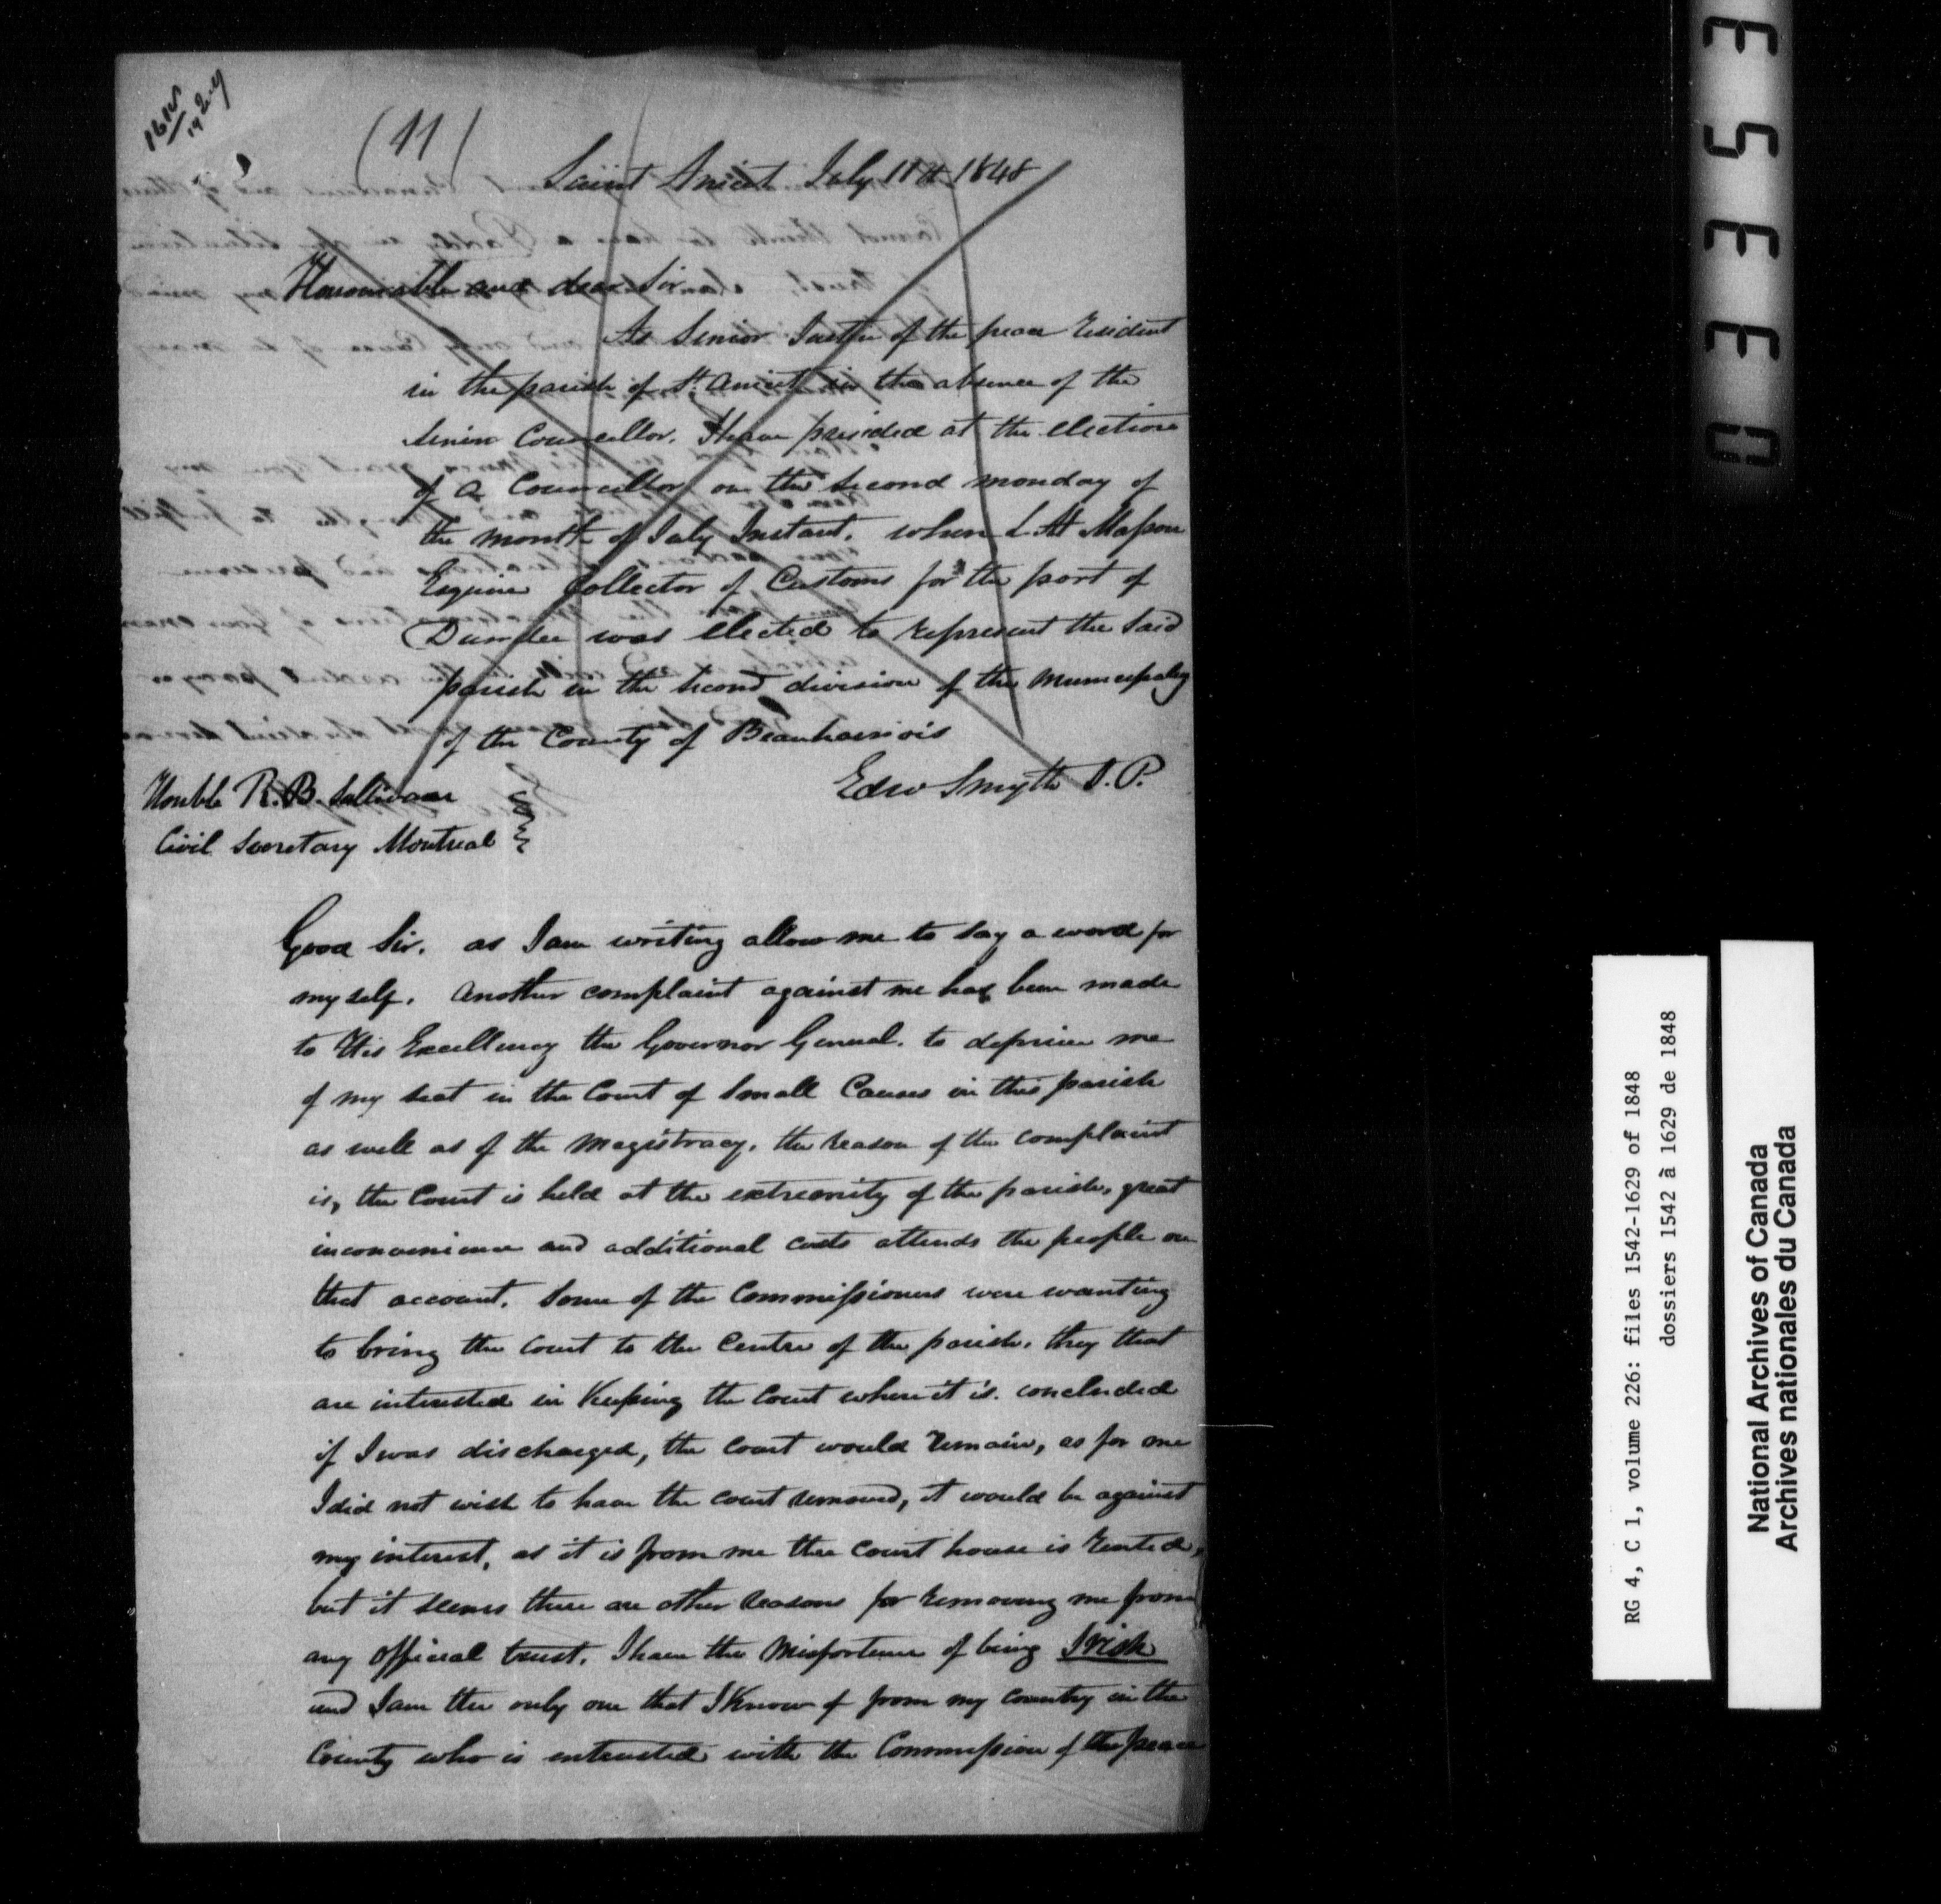 (11)
Saint Anicet July 11th 1848
Honourable and dear Sir
As Senior Justice of the peace resident
in the parish of St. Anicet in the absence of the
Senior Councellor. I have presided at the election
of a Councellor on the second monday of
the month of July Instant. when L H Masson
Esquire Collector of Customs for the port of
Dundee was elected to represent the said
parish in the second division of the municipality
of the County of Beauharnois
Edw Smyth J.P.
Honble R. B. Sullivan
Civil Secretary Montreal
Good Sir. as I am writing allow me to say a word for
myself. Another complaint against me has been made
to His Excellency the Governor General. to deprive me
of my seat in the Court of Small Causes in this parish
as well as of the magistracy. the reason of the complaint
is, the Court is held at the extremity of the parish, great
inconvenience and additional costs attends the people on
that account. Some of the Commissioners were wanting
to bring the Court to the Centre of the parish. they that
are interested in Keeping the Court where it is. concluded
if I was discharged, the Court would remain, as for me
I did not wish to have the court removed, it would be against
my interest, as it is from me the Court house is rented,
but it seems there are other reasons for removing me from
any official trust. I have the misfortune of being Irish
and I am the only one that I Know of from my country in the
County who is entrusted with the Commission of the peace
03353
RG 4, C 1, volume 226: files 1542-1629 of 1848
dossiers 1542 à 1629 de 1848
National Archives of Canada
Archives nationales du Canada